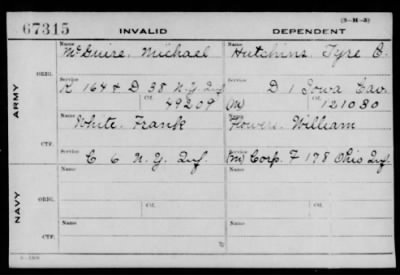 (3-H-3)
67315 INVALID DEPENDENT
Name Name
McGuire, Michael Hutchins, Tyre
ORIG.
Service Service
K 164 & D 38 N.Y. Inf. D 1 Iowa Cav.
Ctf. 49209 (M) Ctf. 121030
ARMY
Name Name
White, Frank Flowers, William
CTF.
Service Service
C 6 N.Y. Inf. (M) Corp. F 178 Ohio Inf.
Name Name
ORIG.
Ctf. Ctf.
NAVY
Name Name
CTF.